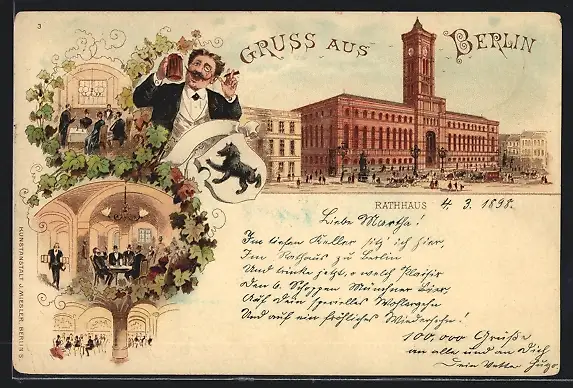 3
GRUSS AUS BERLIN
RATHHAUS 4. 3. 1898.
Liebe Martha!
Im tiefen Keller sitz ich hier,
Im Rathaus zu Berlin
Und trinke jetzt, o welch Plaisir
Den 6. Schoppen Münchner Bier,
Auf Dein specielles Wohlergehn
Und auf ein fröhliches Wiedersehn!
100,000 Grüße
an alle und an Dich
Dein Vetter Hugo.
KUNSTANSTALT J. MIESLER, BERLIN S.